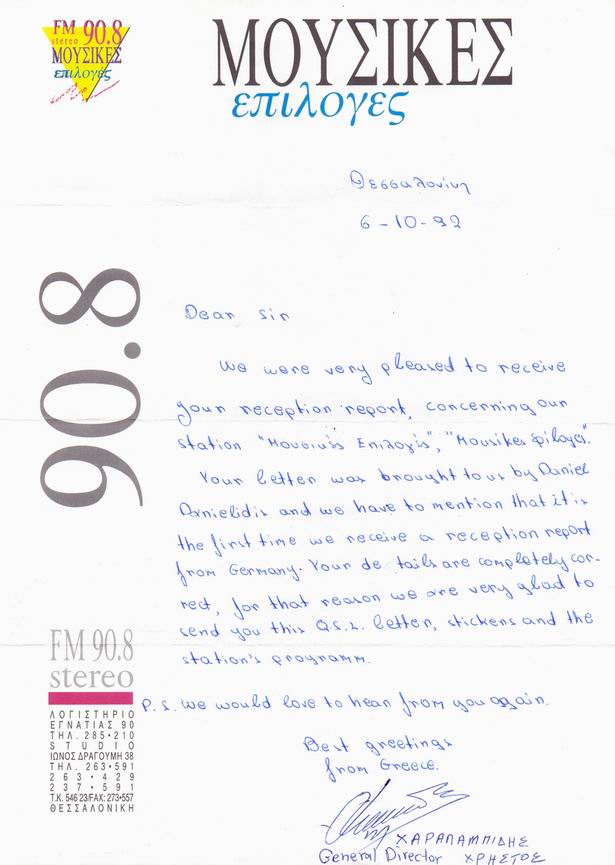 FM 90.8
stereo
ΜΟΥΣΙΚΕΣ
επιλογες
ΜΟΥΣΙΚΕΣ
επιλογες
Θεσσαλονίκη
6-10-92
Dear Sir
We were very pleased to receive
your reception report, concerning our
station "Μουσικές Επιλογές", "Mousikes Epiloges".
Your letter was brought to us by Daniel
Danielidis and we have to mention that it is
the first time we receive a reception report
from Germany. Your de tails are completely cor-
rect, for that reason we are very glad to
send you this Q.S.L. letter, stickers and the
station's programm.
P.S. We would love to hear from you again.
Best greetings
from Greece.
ΧΑΡΑΛΑΜΠΙΔΗΣ
General Director ΧΡΗΣΤΟΣ
90.8
FM 90.8
stereo
ΛΟΓΙΣΤΗΡΙΟ
ΕΓΝΑΤΙΑΣ 90
ΤΗΛ. 285·210
STUDIO
ΙΩΝΟΣ ΔΡΑΓΟΥΜΗ 38
ΤΗΛ. 263·591
263·429
237·591
Τ.Κ. 546 23/FAX: 273·557
ΘΕΣΣΑΛΟΝΙΚΗ